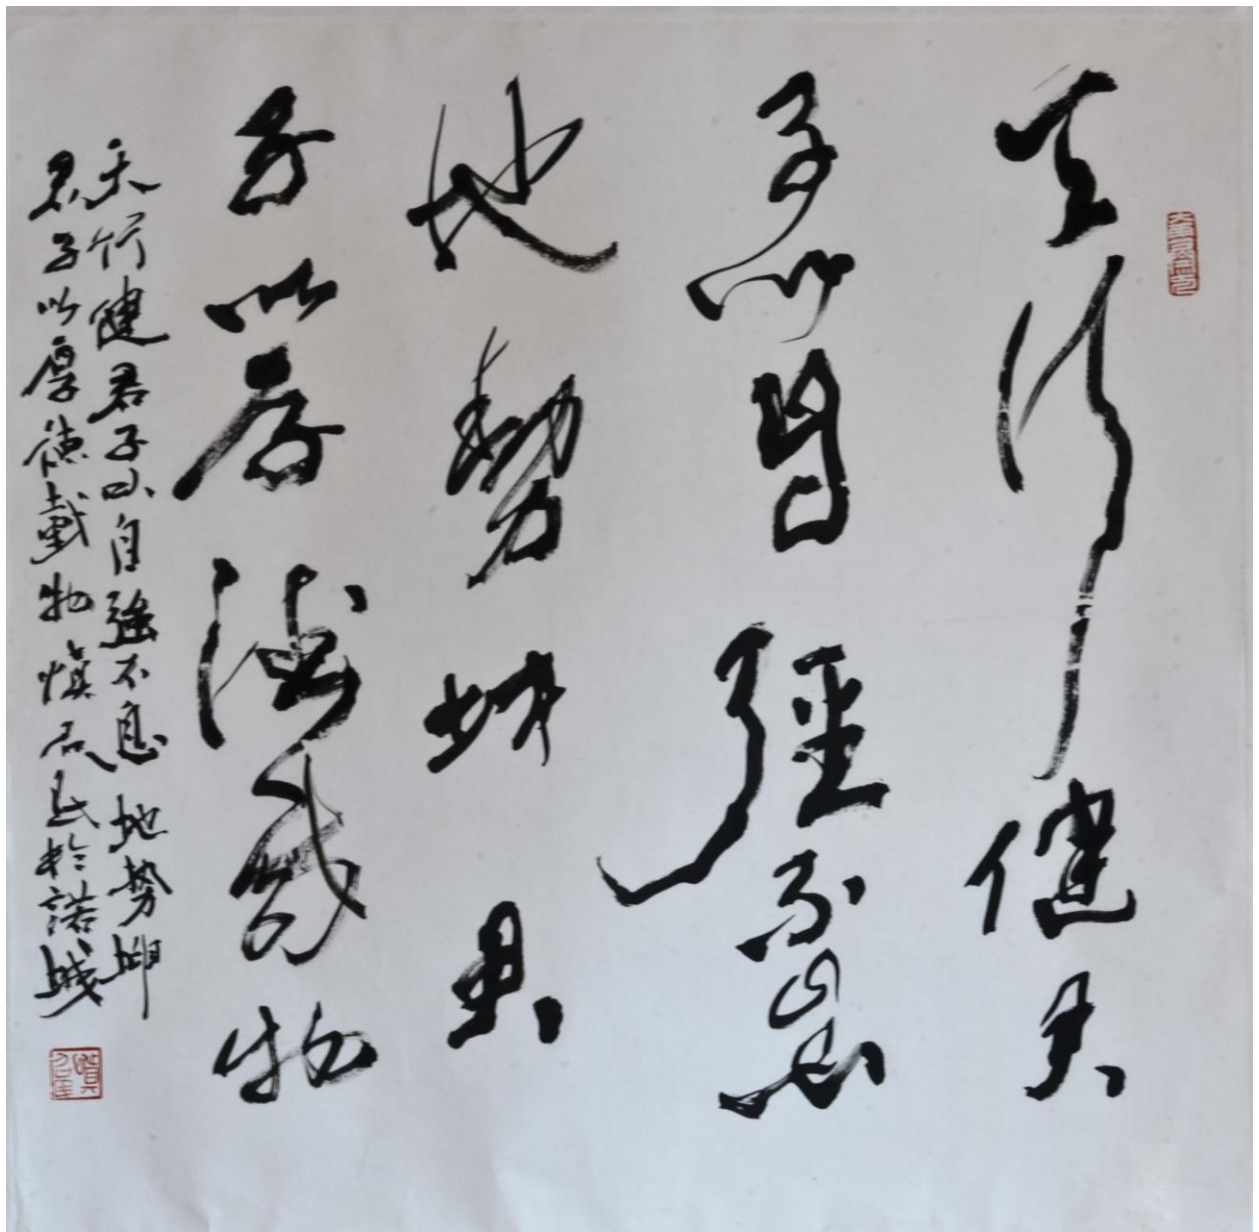 天行健君
子以自強不息
地勢坤君
子以厚德載物
天行健君子以自強不息 地勢坤
君子以厚德載物 慎
於諾城